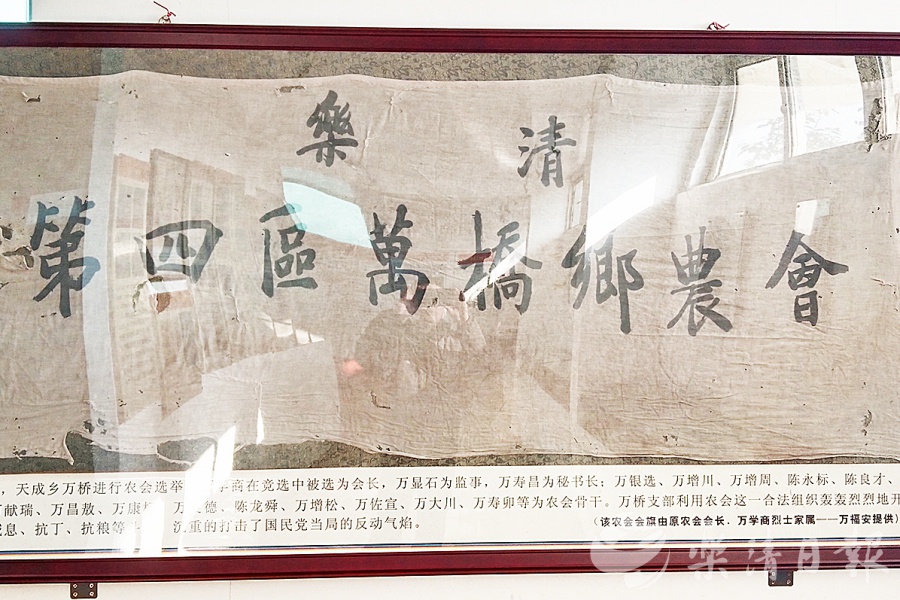 樂清
第四區萬橋鄉農會
，天成乡万桥进行农会选举 学商在竞选中被选为会长，万显石为监事，万寿昌为秘书长；万银选、万增川、万增周、陈永标、陈良才、
献瑞、万昌敖、万康 德、陈龙舜、万增松、万佐宣、万大川、万寿卯等为农会骨干。万桥支部利用农会这一合法组织轰轰烈烈地开
息、抗丁、抗粮等 沉重的打击了国民党当局的反动气焰。
（该农会会旗由原农会会长．万学商烈士家属——万福安提供）
樂清日報